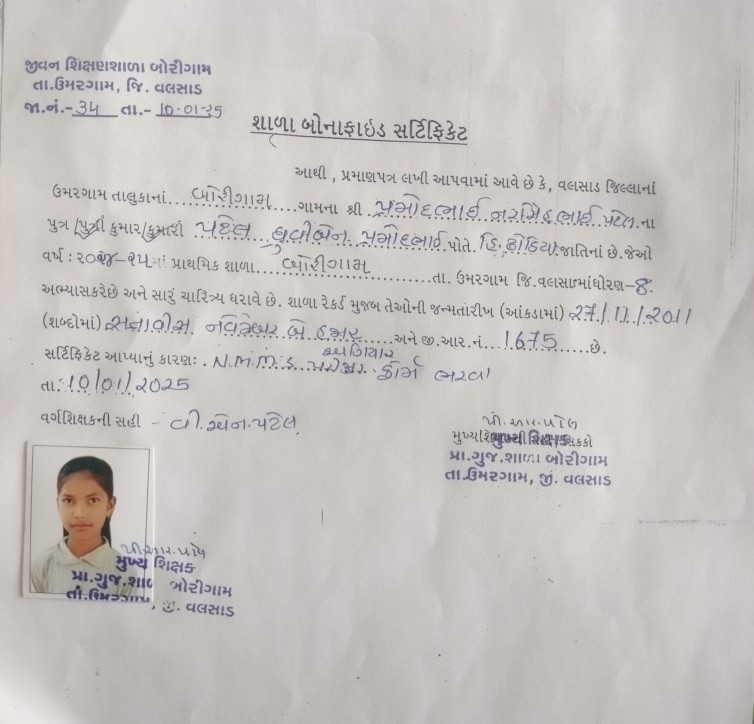 જીવન શિક્ષણશાળા બોરીગામ
તા.ઉમરગામ, જિ. વલસાડ
જા.નં.- 34 તા.- 10-01-25
શાળા બોનાફાઇડ સર્ટિફિકેટ
આથી , પ્રમાણપત્ર લખી આપવામાં આવે છે કે, વલસાડ જિલ્લાનાં
ઉમરગામ તાલુકાનાં...બોરીગામ....ગામના શ્રી પ્રમોદભાઈ નરસિહભાઈ પટેલ ના
પુત્ર /પુત્રી કુમાર/કુમારી પટેલ ધ્રુવીબેન પ્રમોદભાઈ પોતે. હિ. ઢોડિયા.જાતિનાં છે.જેઓ
વર્ષ : ૨૦૨૪-૨૫નાં પ્રાથમિક શાળા....બોરીગામ....તા. ઉમરગામ જિ.વલસાડમાંધોરણ-8.
અભ્યાસકરેછે અને સારું ચારિત્ર્ય ધરાવે છે. શાળા રેકર્ડ મુજબ તેઓની જન્મતારીખ (આંકડામાં) 27/11/2011
(શબ્દોમાં) સત્તાવીસ નવેમ્બર બે હજાર અગિયાર...અને જી.આર.નં...1675......છે.
સર્ટિફિકેટ આપ્યાનું કારણ: . N.M.M.S. પરીક્ષા ફોર્મ ભરવા
તા:10/01/2025
વર્ગશિક્ષકની સહી - વી.એન.પટેલ
મુખ્ય શિક્ષક
પ્રા.ગુજ.શાળા બોરીગામ
તા.ઉમરગામ, જી. વલસાડ
મુખ્ય શિક્ષક
પ્રા.ગુજ.શાળ બોરીગામ
તા.ઉમરગામ, જી. વલસાડ